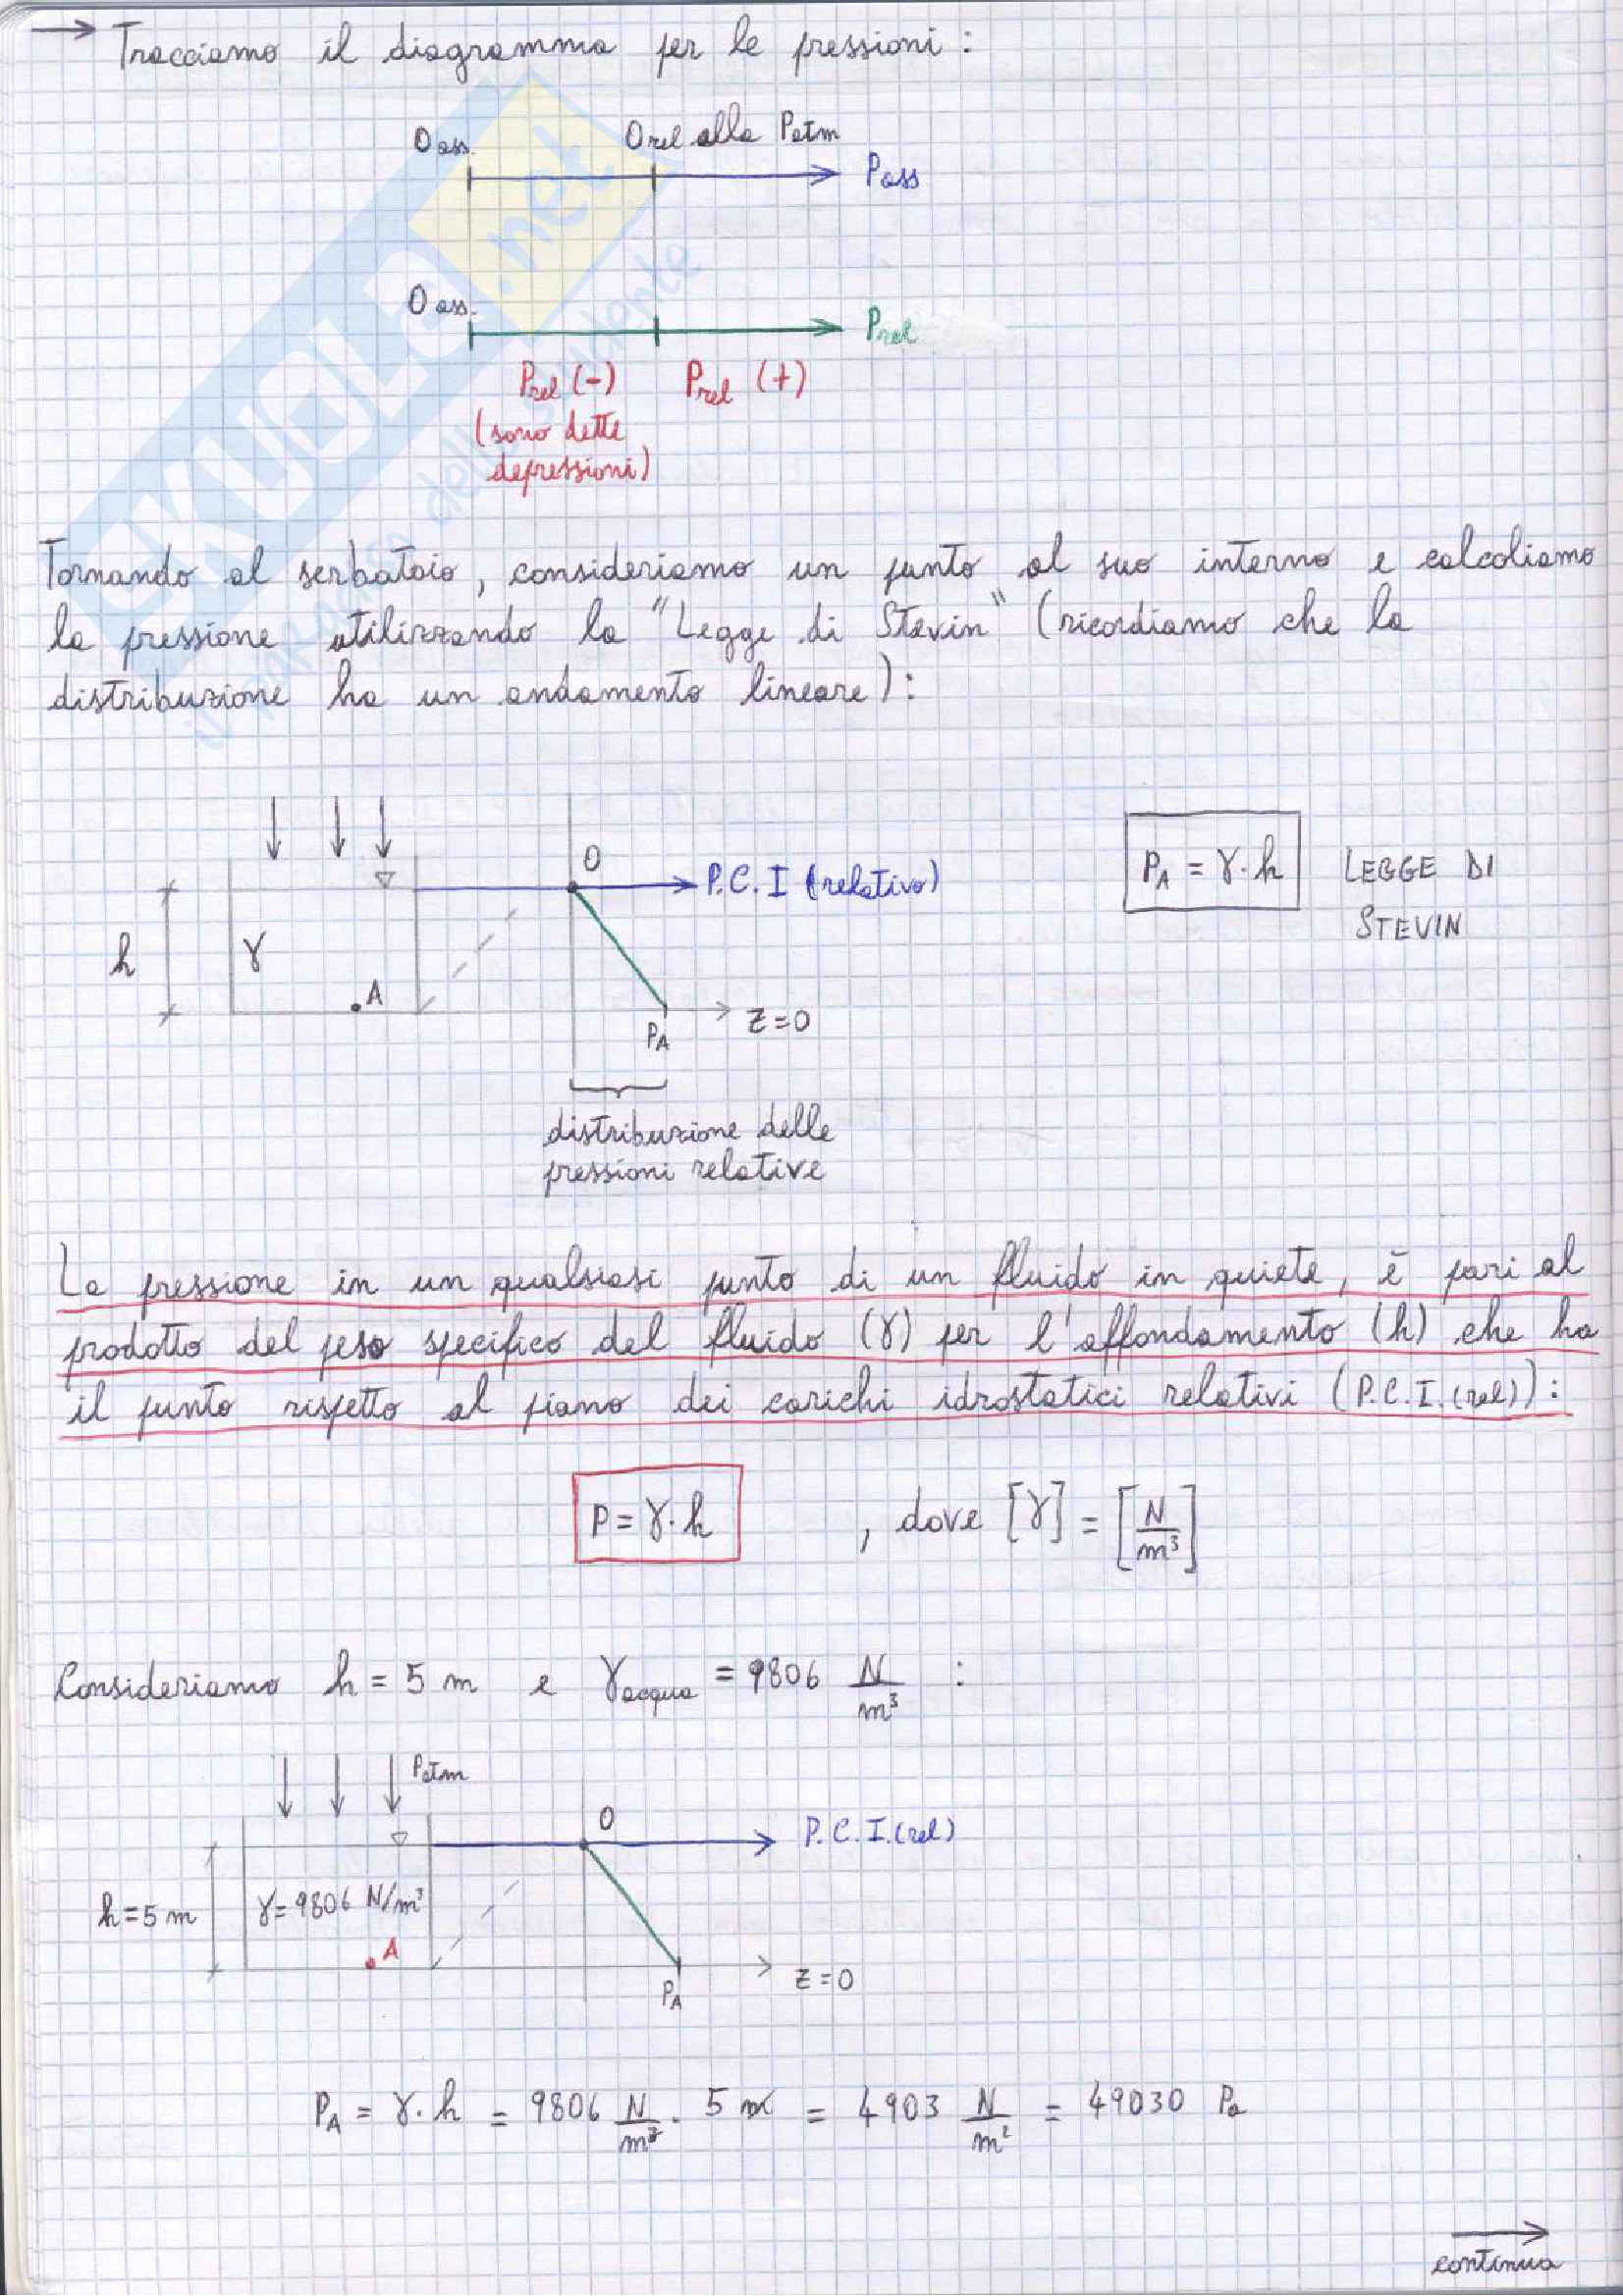 → Tracciamo il diagramma per le pressioni:
0 ass. 0 rel alla Patm
Pass
0 ass.
Prel
Prel (-) Prel (+)
(sono dette
depressioni)
SKUOLA.net
Tornando al serbatoio, consideriamo un punto al suo interno e calcoliamo
la pressione utilizzando la "Legge di Stevin" (ricordiamo che la
distribuzione ha un andamento lineare):
O
P.C.I (relativo)
PA = γ·h LEGGE DI
STEVIN
h γ
A
PA
z=0
distribuzione delle
pressioni relative
La pressione in un qualsiasi punto di un fluido in quiete, è pari al
prodotto del peso specifico del fluido (γ) per l'affondamento (h) che ha
il punto rispetto al piano dei carichi idrostatici relativi (P.C.I.(rel)):
P = γ·h , dove [γ] = [N/m³]
Consideriamo h = 5 m e γacqua = 9806 N/m³ :
Patm
O
P.C.I.(rel)
h=5m γ=9806 N/m³
A
PA
z=0
PA = γ·h = 9806 N/m³ · 5 m = 4903 N/m² = 49030 Pa
continua